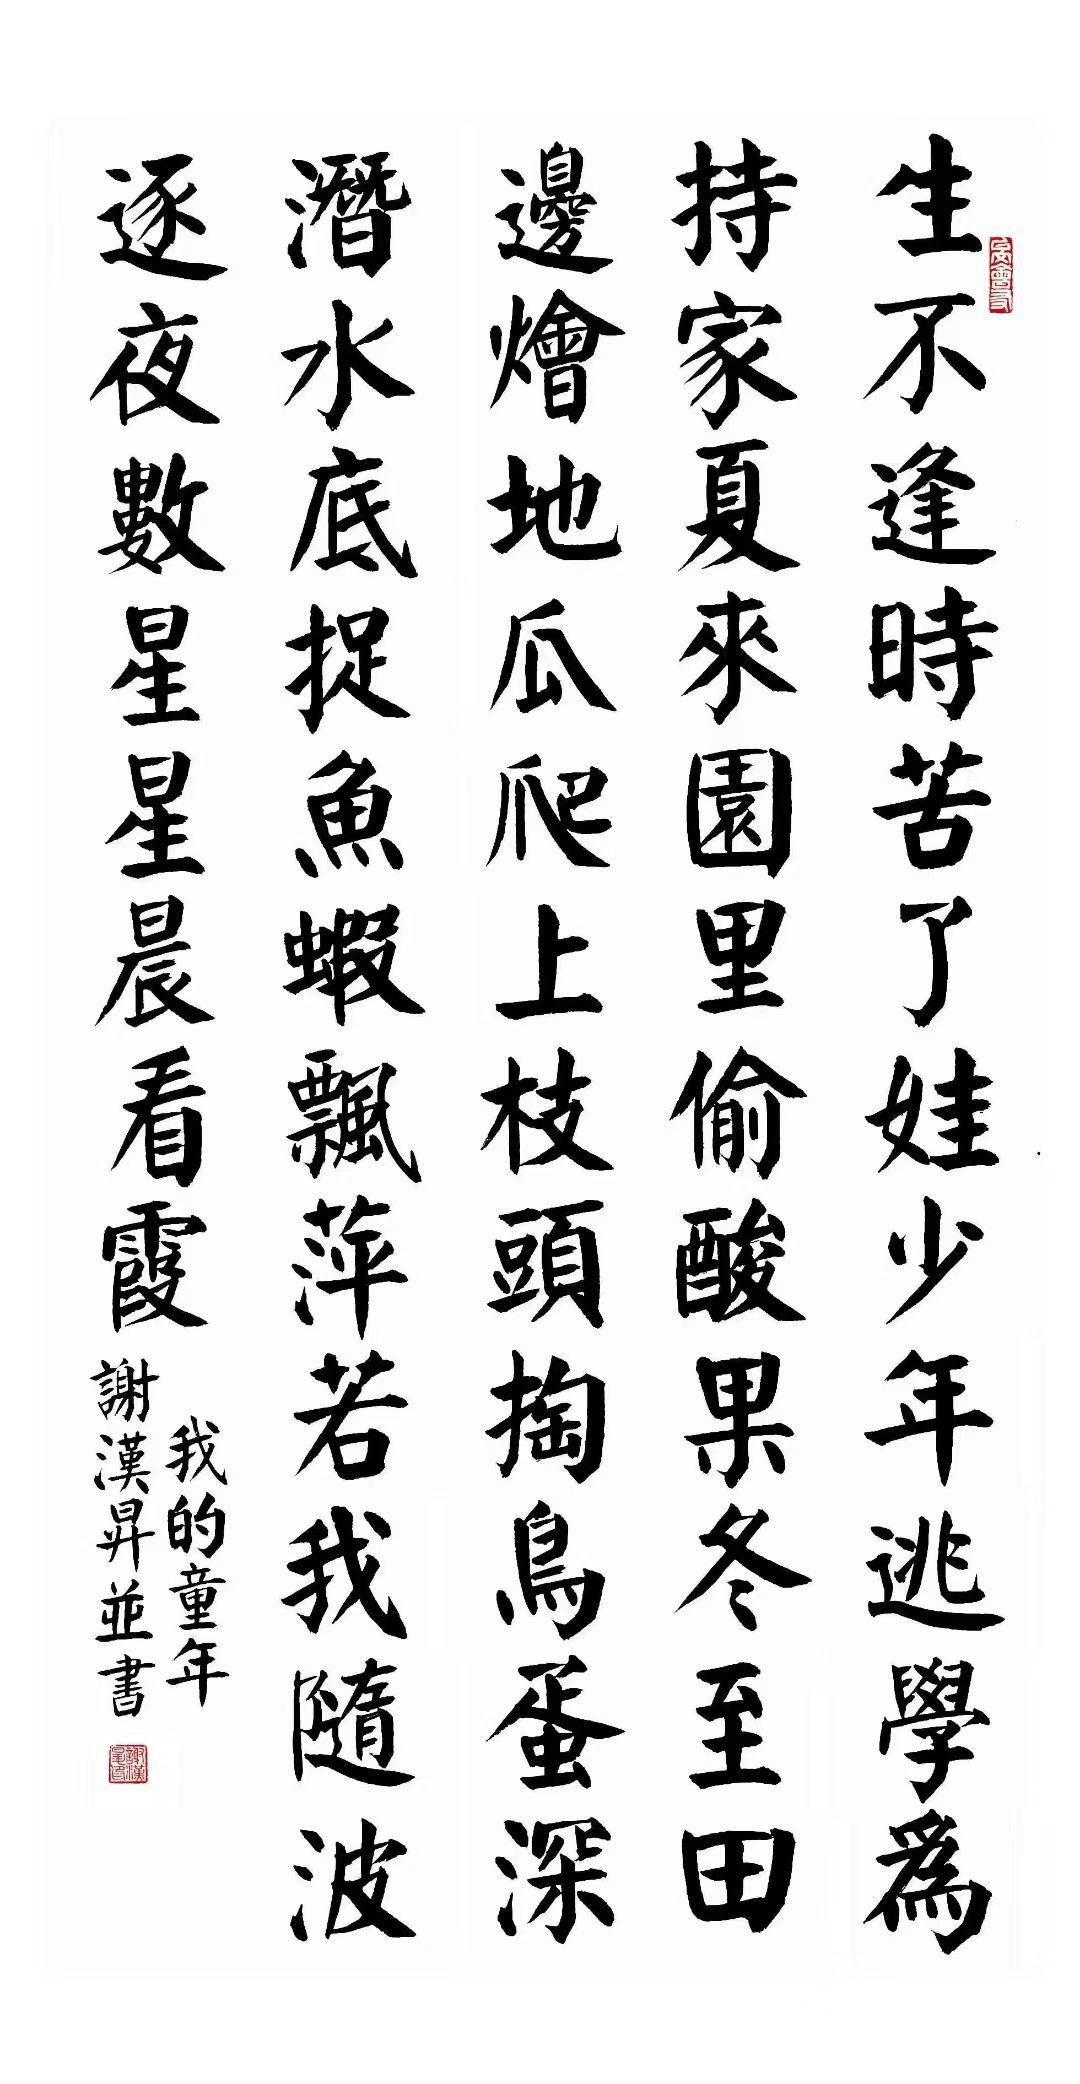 生不逢時苦了娃少年逃學為
持家夏來園里偷酸果冬至田
邊燴地瓜爬上枝頭掏鳥蛋深
潛水底捉魚蝦飄萍若我隨波
逐夜數星星晨看霞
我的童年
謝漢昇並書